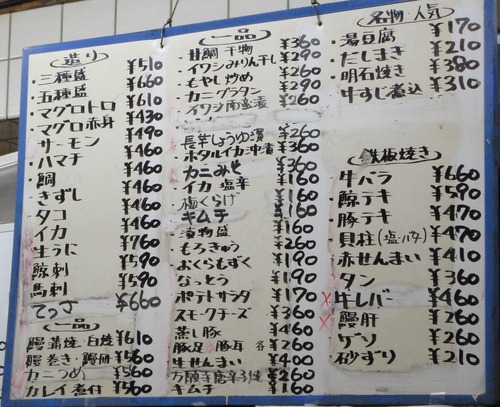 造り
・三種盛 ¥510
・五種盛 ¥660
・マグロトロ ¥610
・マグロ赤身 ¥430
・サーモン ¥490
・ハマチ ¥460
・鯛 ¥460
・きずし ¥460
・タコ ¥460
・イカ ¥460
・生うに ¥760
・鯨刺 ¥590
・馬刺 ¥590
・てっさ ¥660
一品
鰻蒲焼・白焼 ¥610
鰻巻き・鰻冊 ¥560
カニつめ ¥560
カレイ煮付 ¥560
一品
・甘鯛干物 ¥360
・イワシみりん干し ¥290
・もやし炒め ¥260
・カニグラタン ¥290
・イワシ南蛮漬 ¥260
・長芋しょうゆ漬 ¥260
・ホタルイカ沖漬 ¥360
・カニみそ ¥360
・イカ塩辛 ¥160
・梅くらげ ¥160
・キムチ ¥160
・漬物盛 ¥160
・もろきゅう ¥260
・おくらもずく ¥190
・なっとう ¥190
・ポテトサラダ ¥170
・スモークチーズ ¥360
・蒸し豚 ¥460
・豚足 豚耳 各 ¥260
・牛せんまい ¥400
・万願寺唐辛子焼 ¥260
・キムチ ¥160
名物・人気
・湯豆腐 ¥170
・だしまき ¥210
・明石焼き ¥380
・牛すじ煮込 ¥310
鉄板焼き
・牛バラ ¥660
・鯨テキ ¥590
・豚テキ ¥470
・貝柱(塩・バタ) ¥470
・赤せんまい ¥410
・タン ¥360
・牛レバー ¥460
・鰻肝 ¥260
・ゲソ ¥260
・砂ずり ¥210